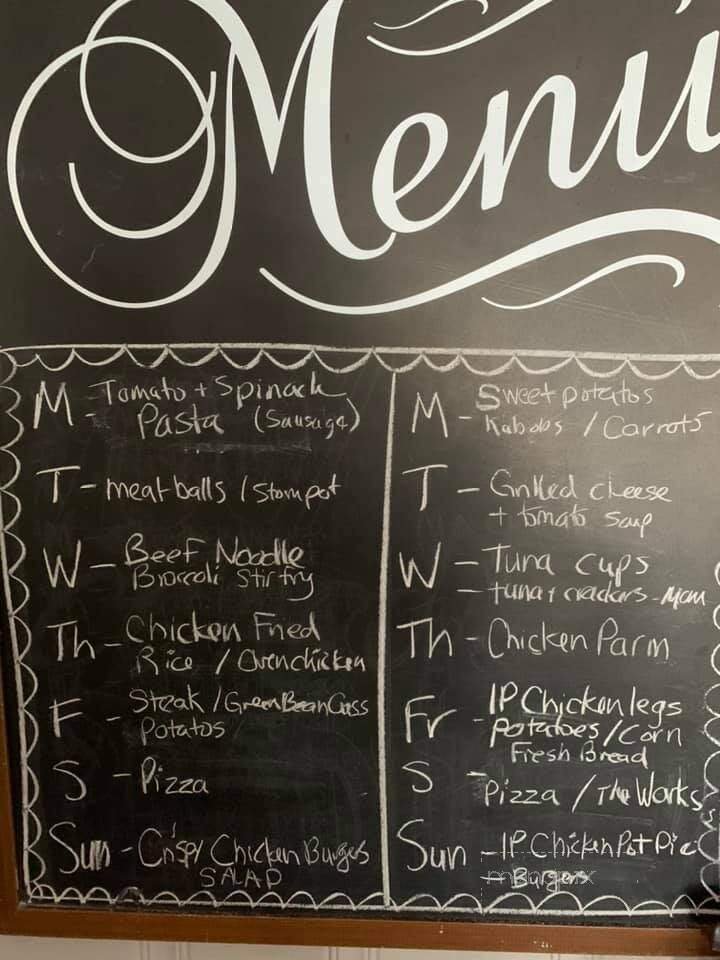 Menu
M - Tomato + Spinach
Pasta (Sausage)
T - meatballs / Stompot
W - Beef Noodle
Broccoli Stirfry
Th - Chicken Fried
Rice / Ovenchicken
F - Steak / GreenBeanCass
Potatos
S - Pizza
Sun - Crispy Chicken Burgers
SALAD
M - Sweet potatos
Kabobs / Carrots
T - Grilled cheese
+ tomato soup
W - Tuna cups
- tuna + crackers - Mom
Th - Chicken Parm
Fr - IP Chicken legs
potatoes / Corn
Fresh Bread
S - Pizza / The Works
Sun - IP Chicken Pot Pie
Burgers